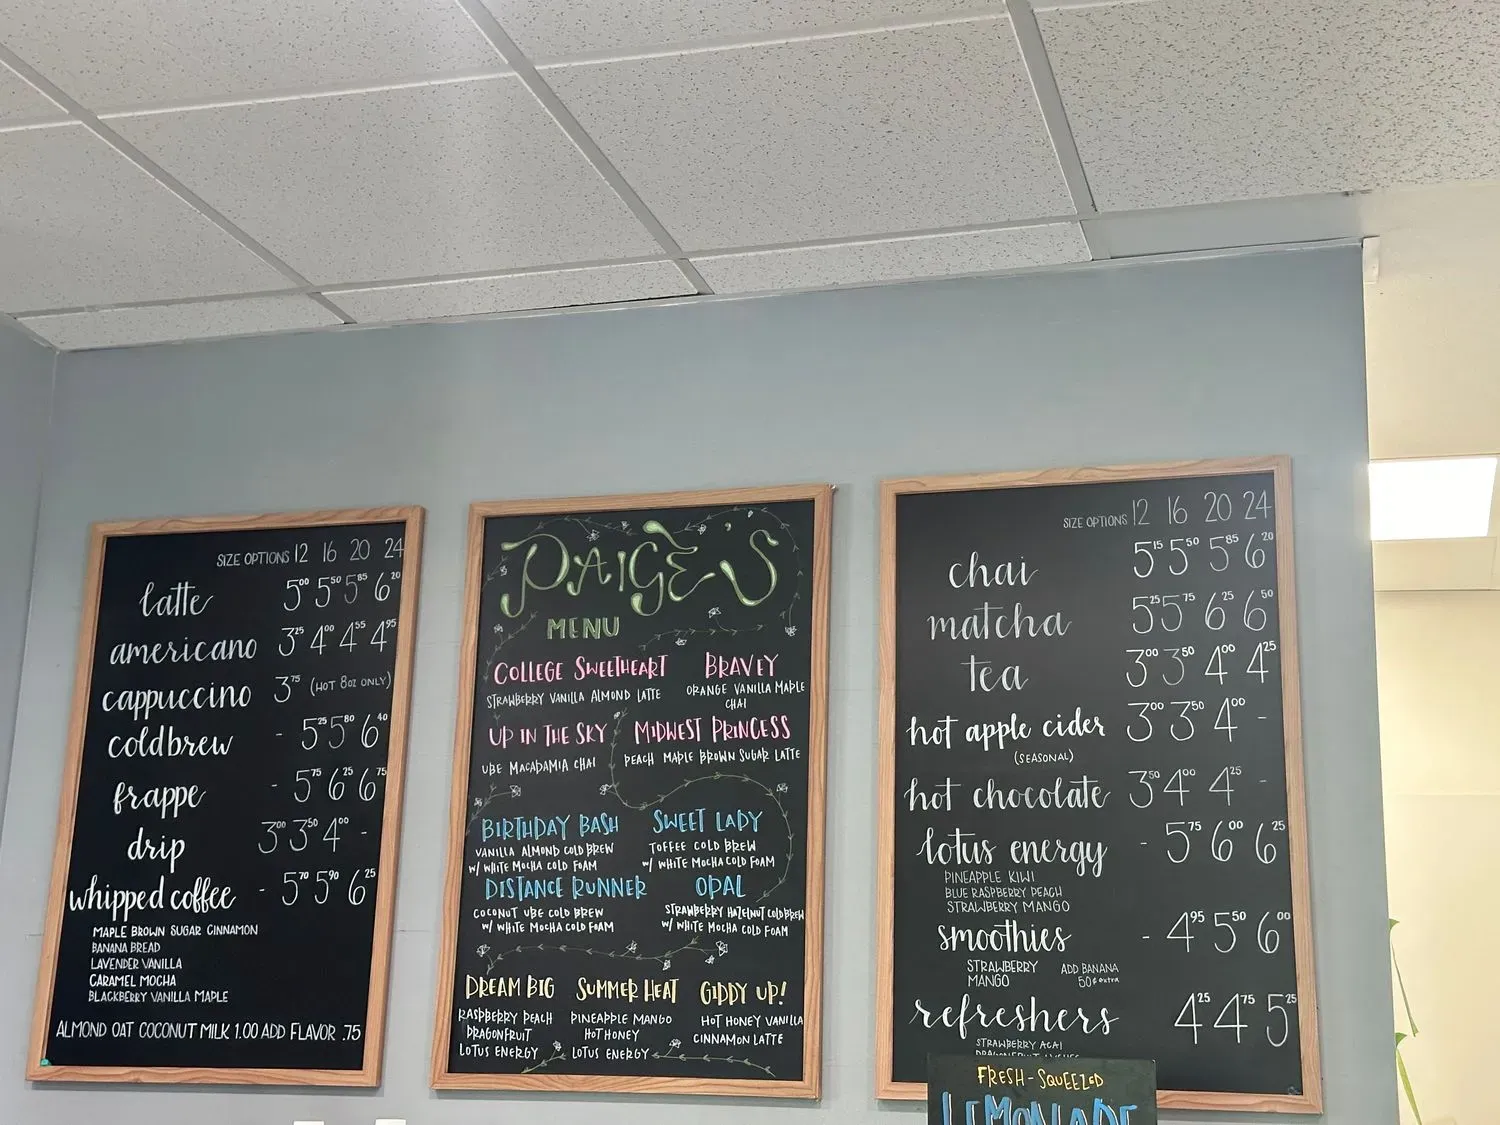 SIZE OPTIONS 12 16 20 24
latte 5.00 5.50 5.85 6.20
americano 3.25 4.00 4.55 4.95
cappuccino 3.75 (HOT 8oz ONLY)
coldbrew - 5.25 5.80 6.40
frappe - 5.75 6.25 6.75
drip 3.00 3.50 4.00 -
whipped coffee - 5.70 5.90 6.25
MAPLE BROWN SUGAR CINNAMON
BANANA BREAD
LAVENDER VANILLA
CARAMEL MOCHA
BLACKBERRY VANILLA MAPLE
ALMOND OAT COCONUT MILK 1.00 ADD FLAVOR .75
PAIGE'S
MENU
COLLEGE SWEETHEART
STRAWBERRY VANILLA ALMOND LATTE
BRAVEY
ORANGE VANILLA MAPLE
CHAI
UP IN THE SKY
UBE MACADAMIA CHAI
MIDWEST PRINCESS
PEACH MAPLE BROWN SUGAR LATTE
BIRTHDAY BASH
VANILLA ALMOND COLD BREW
w/ WHITE MOCHA COLD FOAM
SWEET LADY
TOFFEE COLD BREW
w/ WHITE MOCHA COLD FOAM
DISTANCE RUNNER
COCONUT UBE COLD BREW
w/ WHITE MOCHA COLD FOAM
OPAL
STRAWBERRY HAZELNUT COLD BREW
w/ WHITE MOCHA COLD FOAM
DREAM BIG
RASPBERRY PEACH
DRAGONFRUIT
LOTUS ENERGY
SUMMER HEAT
PINEAPPLE MANGO
HOT HONEY
LOTUS ENERGY
GIDDY UP!
HOT HONEY VANILLA
CINNAMON LATTE
SIZE OPTIONS 12 16 20 24
chai 5.15 5.50 5.85 6.20
matcha 5.25 5.75 6.25 6.50
tea 3.00 3.50 4.00 4.25
hot apple cider 3.00 3.50 4.00 -
(SEASONAL)
hot chocolate 3.50 4.00 4.25 -
lotus energy - 5.75 6.00 6.25
PINEAPPLE KIWI
BLUE RASPBERRY PEACH
STRAWBERRY MANGO
smoothies - 4.95 5.50 6.00
STRAWBERRY
MANGO
ADD BANANA
50¢ extra
refreshers 4.25 4.75 5.25
STRAWBERRY ACAI
DRAGONFRUIT LYCHEE
FRESH-SQUEEZED
LEMONADE